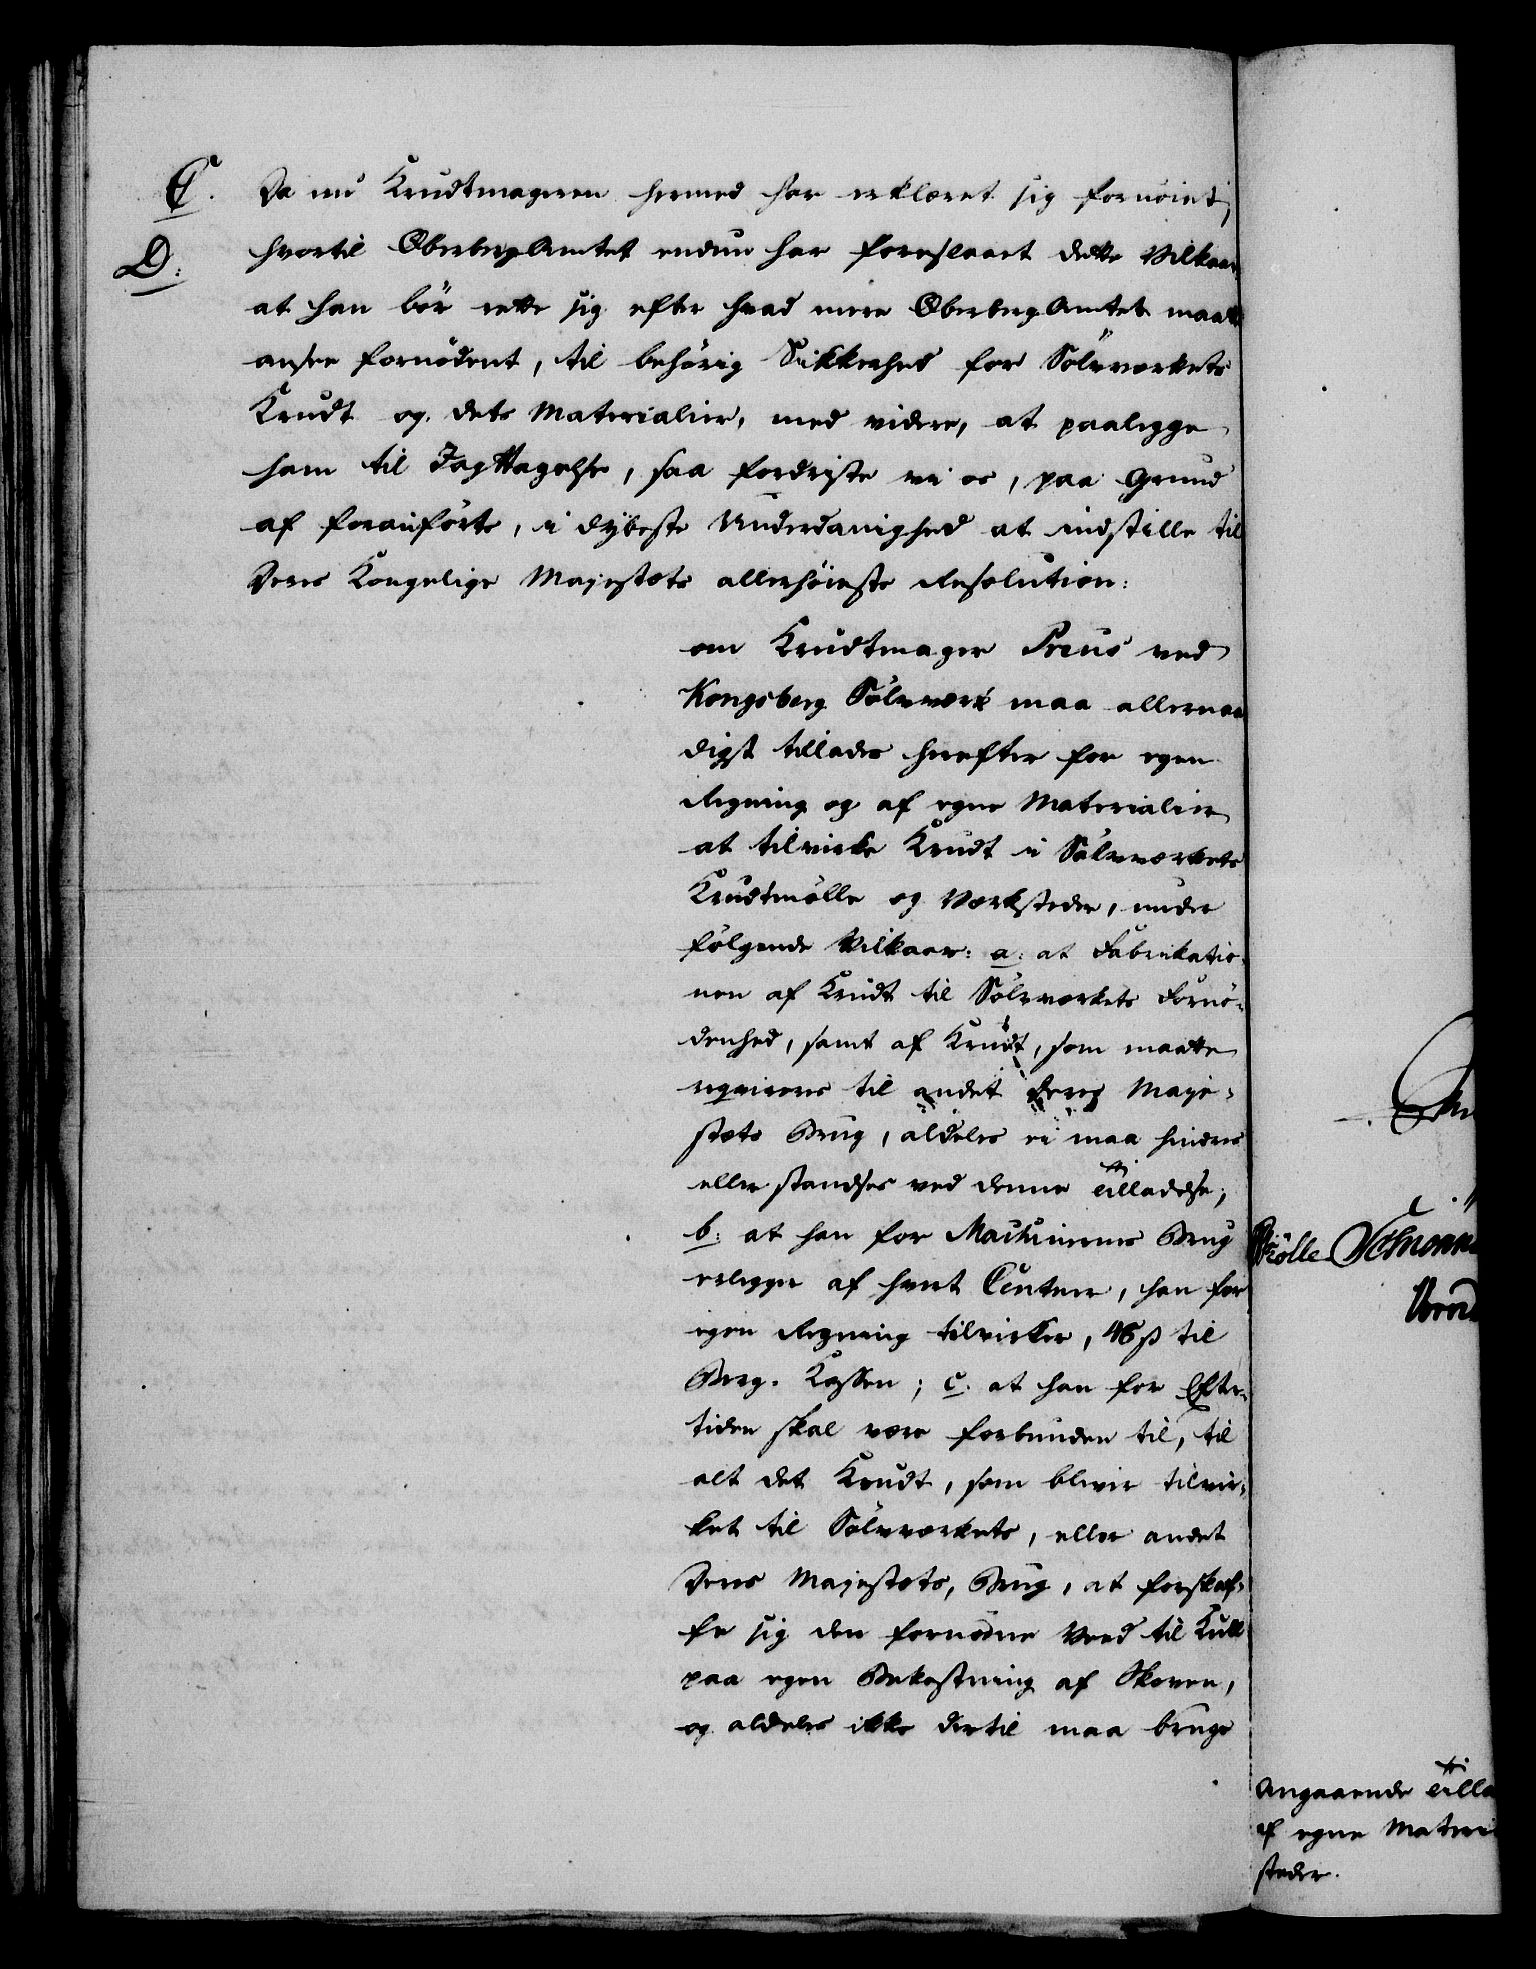 C. Da nu Krudtmageren hermed har erklæret sig fornöiet,
D: hvortil OberbergAmtet endnu har foreslaaet dette Vilkaar
at han bör rette sig efter hvad mere OberbergAmtet maatte
ansee fornödent, til behörig Sikkerhed for Sölvværkets
Krudt og dets Materialier, med videre, at paalegge
ham til Iagttagelse, saa fordriste vi os, paa Grund
af foranförte, i dybeste Underdanighed at indstille til
Deres Kongelige Majestæts allerhöieste Resolution:
om Krudtmager Preus ved
Kongsberg Sölvværk maa allernaa
digst tillades herefter for egen
Regning og af egne Materialier
at tilvirke Krudt i Sölvværkets
Krudtmölle og Værksteder, under
fölgende Vilkaar: a: at Fabrikatio-
nen af Krudt til Sölvværkets Fornö-
denhed, samt af Krudt, som maatte
reqvireres til andet Deres Maje-
stæts Brug, aldeles ei maa hindres
eller standses ved denne Tilladelse;
b: at han for Machinernes Brug
erlegger af hvert Centner, han for
egen Regning tilvirker, 48 ß til
Berg-Kassen; c. at han for Efter-
tiden skal være forbunden til, til
alt det Krudt, som bliver tilvir-
ket til Sölvværkets, eller andet
Deres Majestæts, Brug, at forskaf-
fe sig den fornödne Veed til Kull
paa egen Bekostning af Skoven,
og aldeles ikke dertil maa bruge
Schönn
Angaaende Tilla
af egne Materi
steder.